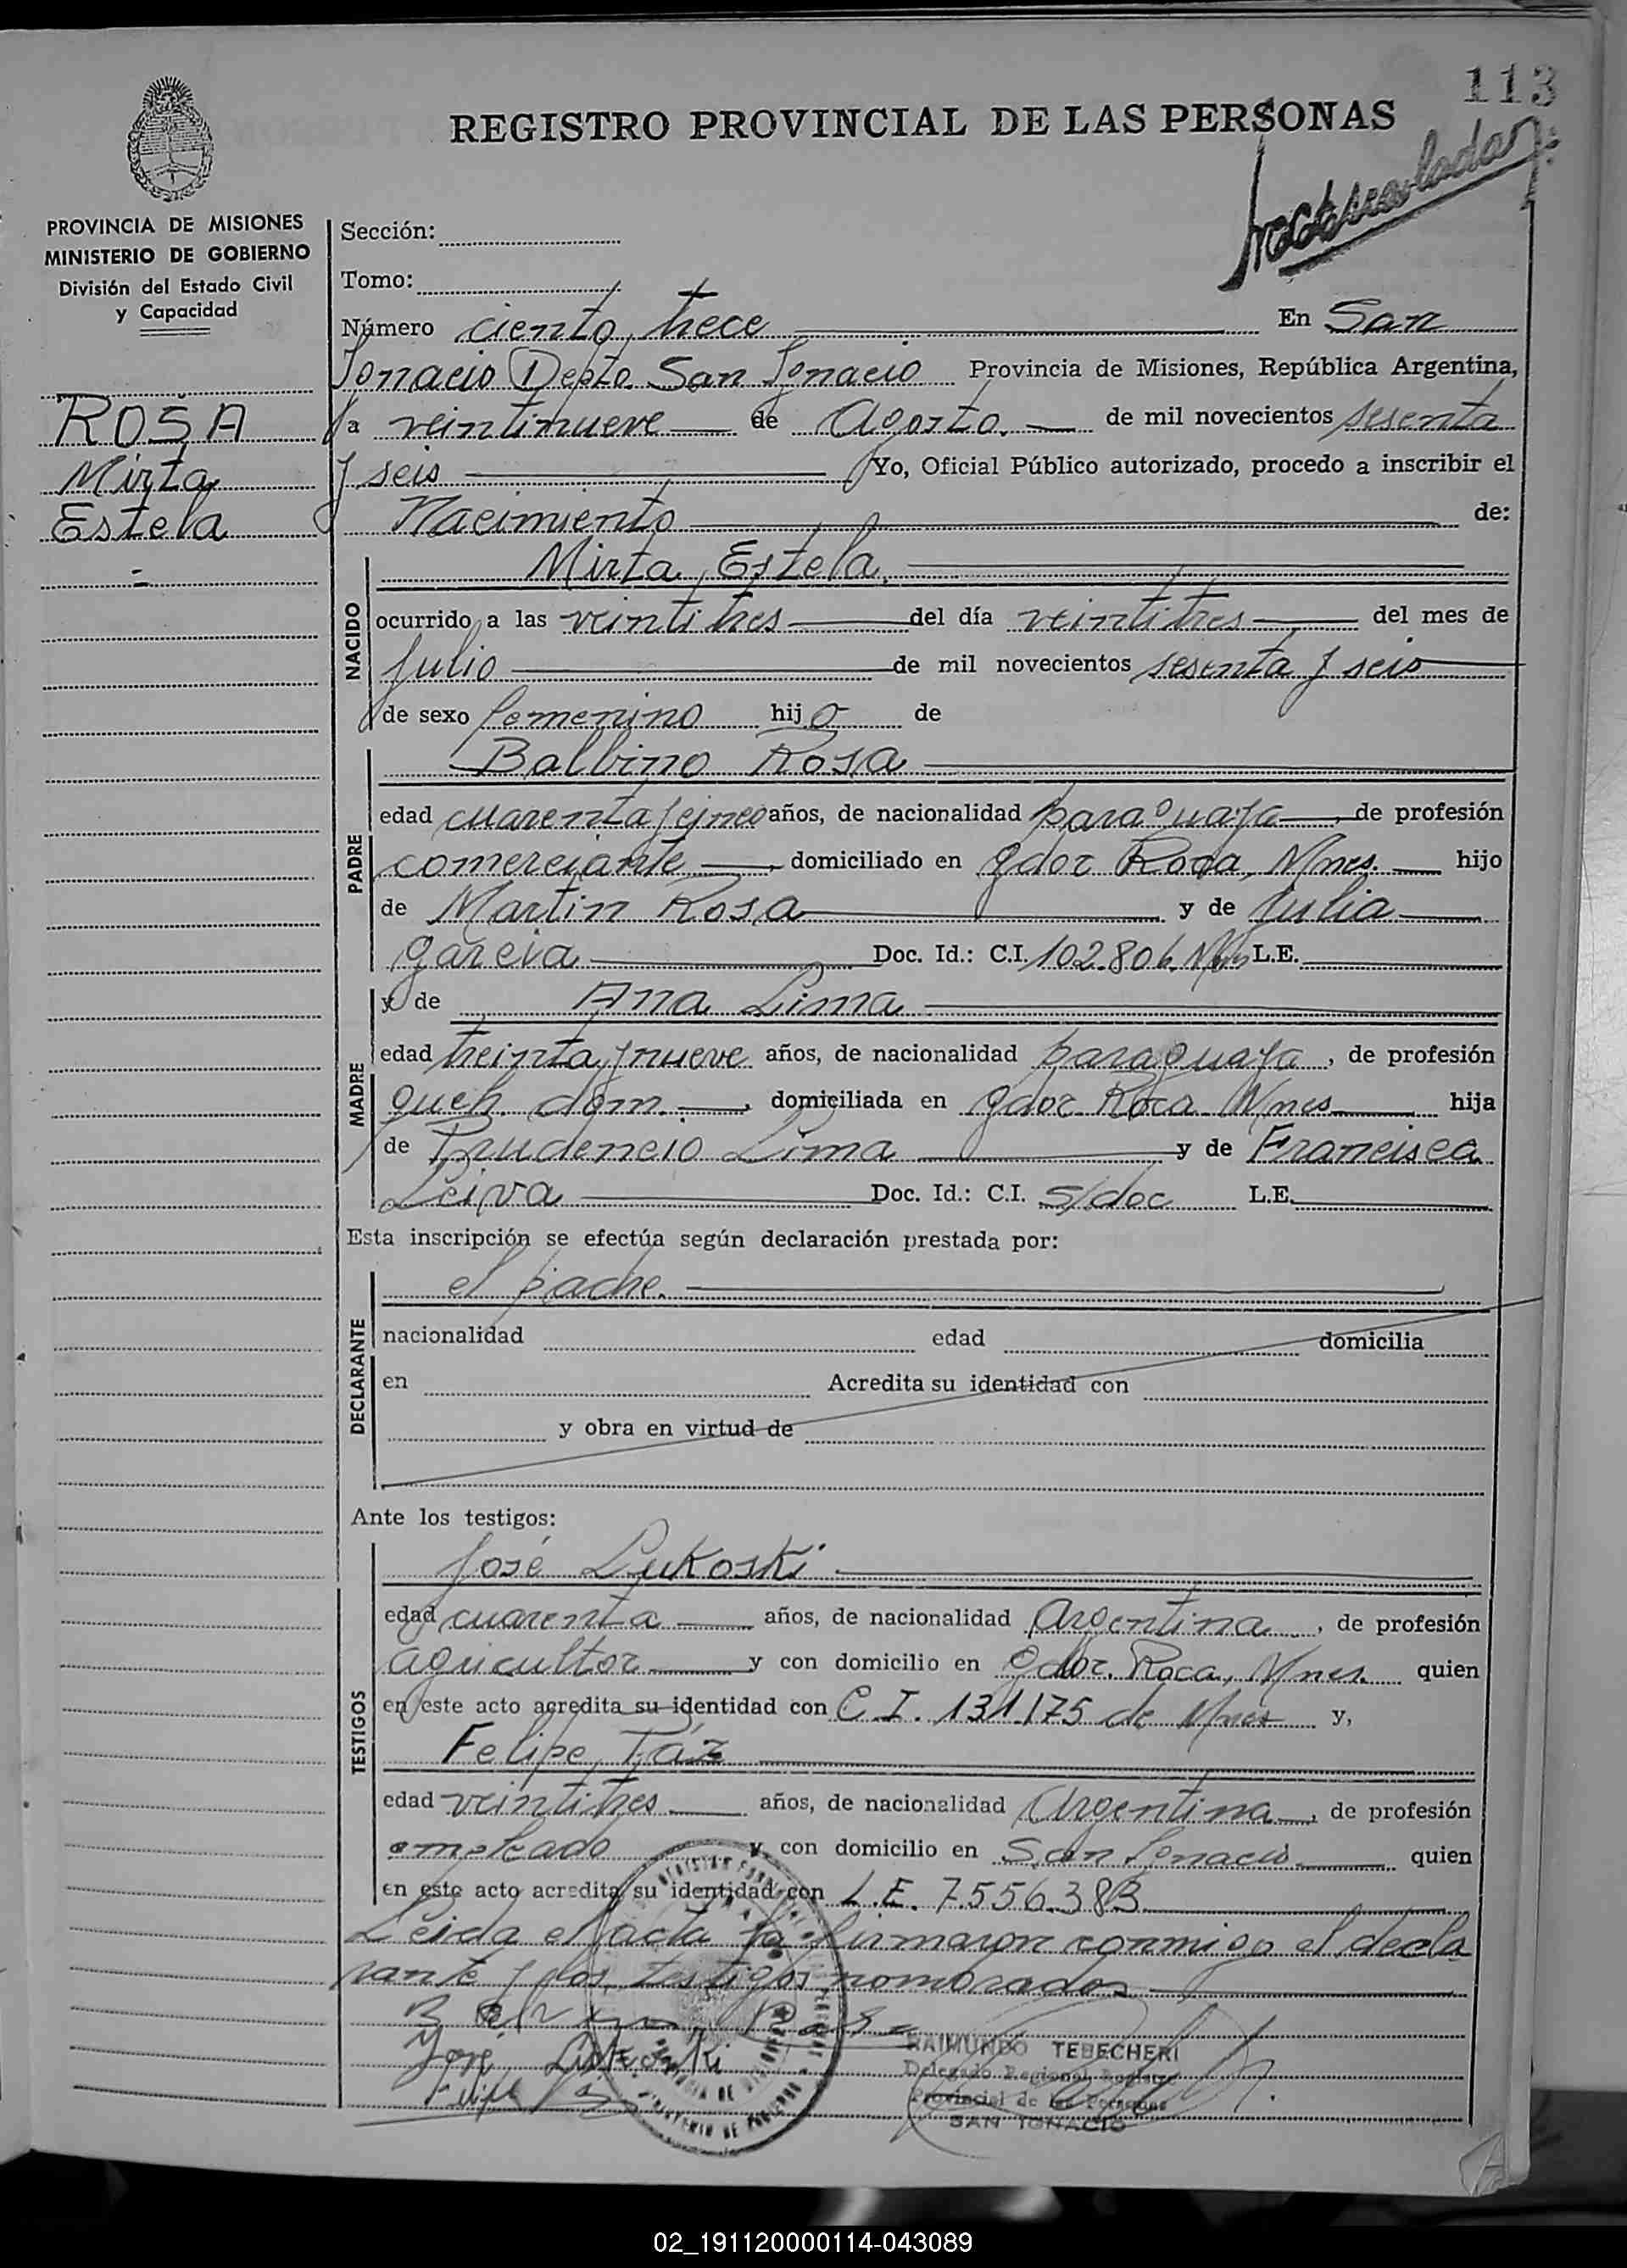 113
REGISTRO PROVINCIAL DE LAS PERSONAS
PROVINCIA DE MISIONES
MINISTERIO DE GOBIERNO
División del Estado Civil
y Capacidad
ROSA
Mirta
Estela
Sección:
Tomo:
Número ciento trece En San
Ignacio Depto San Ignacio Provincia de Misiones, República Argentina,
a veintinueve de Agosto. de mil novecientos sesenta
y seis Yo, Oficial Público autorizado, procedo a inscribir el
Nacimiento de:
NACIDO
Mirta Estela.
ocurrido a las veintitres del día veintitres del mes de
Julio de mil novecientos sesenta y seis
de sexo femenino hijo de
PADRE
Balbino Rosa
edad cuarenta y cinco años, de nacionalidad paraguaya, de profesión
comerciante, domiciliado en Gdor Roca, Mnes. hijo
de Martin Rosa y de Julia
Garcia Doc. Id.: C.I. 102.806. Mns L.E.
MADRE
y de Ana Lima
edad treinta y nueve años, de nacionalidad paraguaya, de profesión
queh. dom., domiciliada en Gdor Roca Mnes hija
de Prudencio Lima y de Francisca
Leiva Doc. Id.: C.I. s/doc L.E.
Esta inscripción se efectúa según declaración prestada por:
DECLARANTE
el padre.
nacionalidad edad domicilia
en Acredita su identidad con
y obra en virtud de
Ante los testigos:
TESTIGOS
José Lukoski
edad cuarenta años, de nacionalidad Argentina, de profesión
agricultor y con domicilio en Gdor. Roca, Mnes. quien
en este acto acredita su identidad con C I. 131.175 de Mnes y,
Felipe Táz
edad veintitres años, de nacionalidad Argentina, de profesión
empleado y con domicilio en San Ignacio quien
en este acto acredita su identidad con L.E. 7.556.383
Leida el acta la firmaron conmigo el decla
rante y los testigos nombrados
José Lukoski
RAIMUNDO TEBECHERI
Delegado Regional Registro
Provincial de las Personas
SAN IGNACIO
02_191120000114-043089